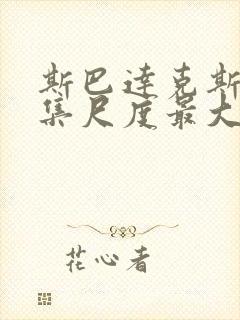 斯巴达克斯
集尺度最大
花心者